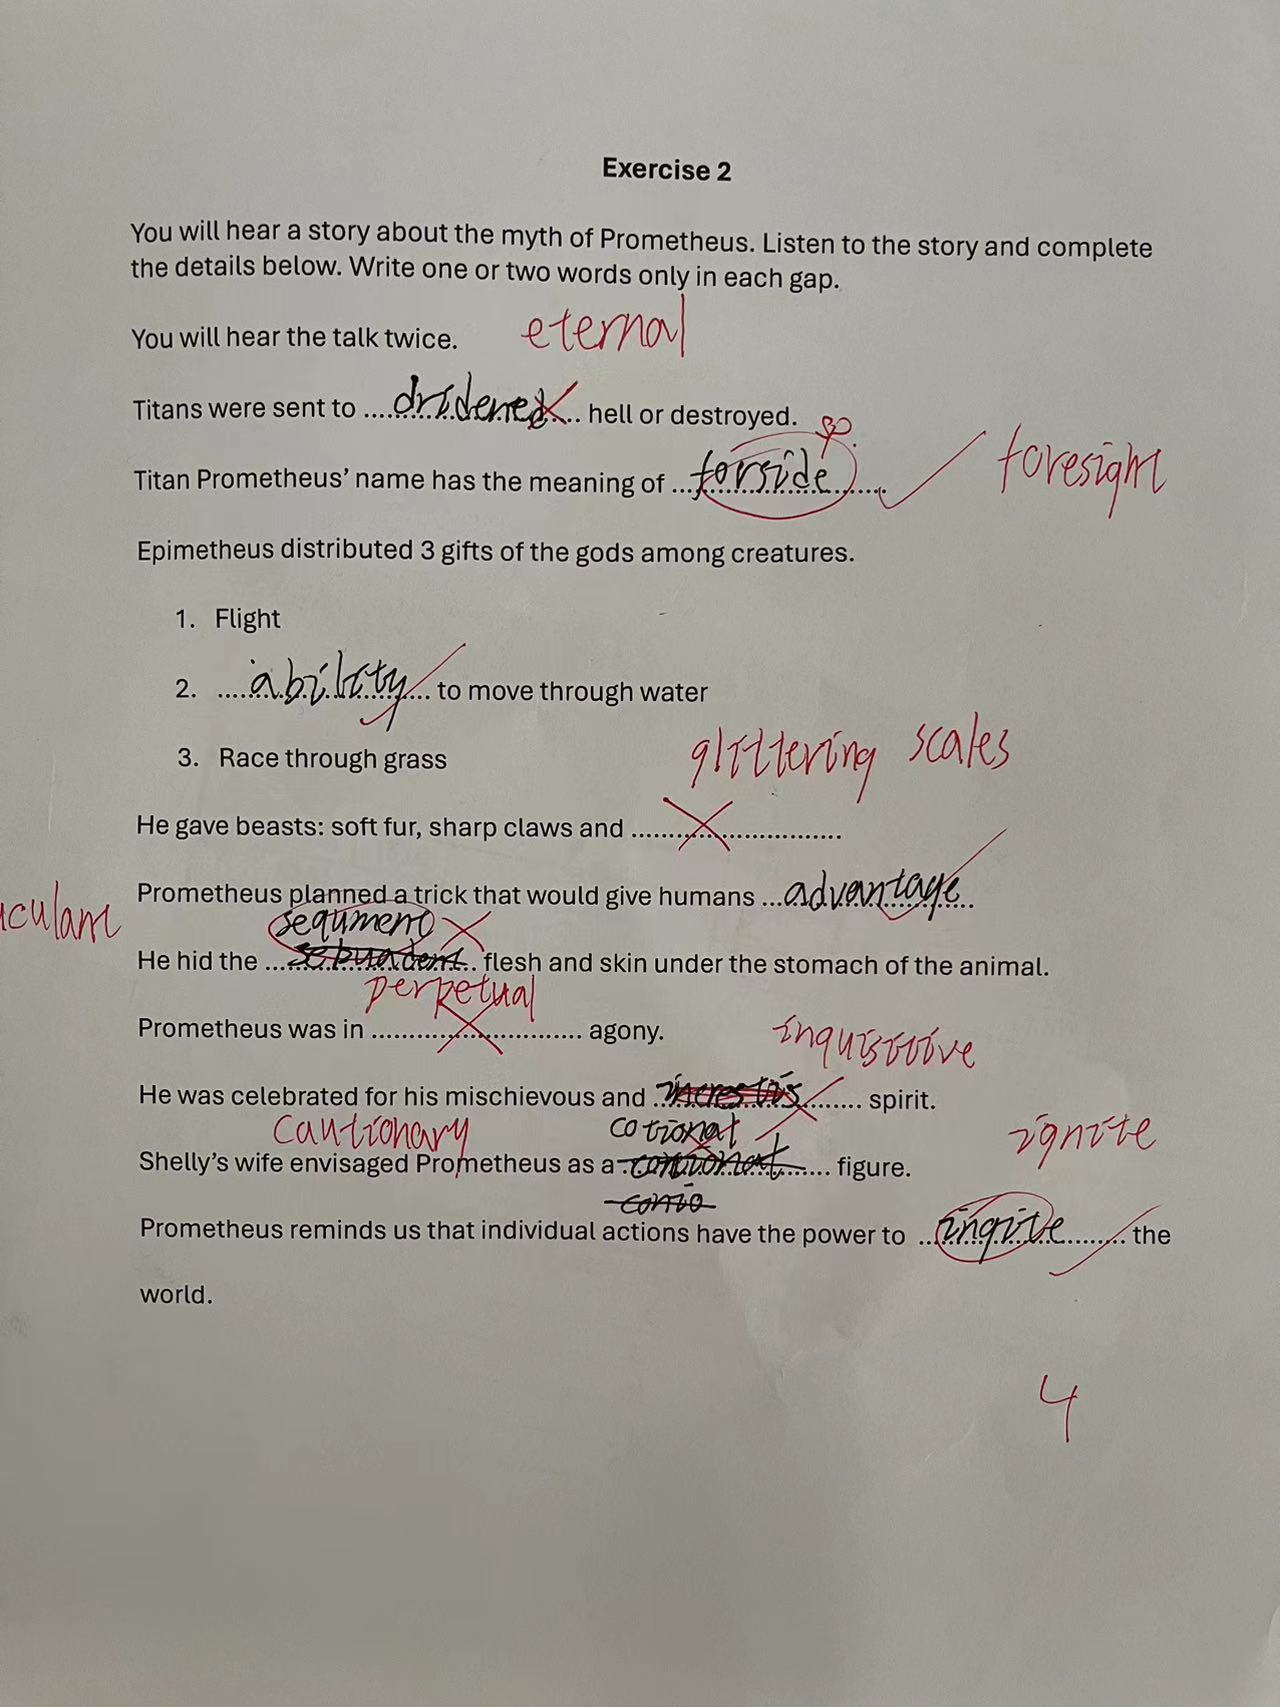 Exercise 2
You will hear a story about the myth of Prometheus. Listen to the story and complete
the details below. Write one or two words only in each gap.
You will hear the talk twice. eternal
Titans were sent to ....dridened.... hell or destroyed.
Titan Prometheus' name has the meaning of ...forside...... foresight
Epimetheus distributed 3 gifts of the gods among creatures.
1. Flight
2. ....ability.... to move through water
3. Race through grass
glittering scales
He gave beasts: soft fur, sharp claws and ..............................
Prometheus planned a trick that would give humans ...advantage...
sequment
He hid the ............................ flesh and skin under the stomach of the animal.
perpetual
Prometheus was in .............................. agony.
inquisitive
He was celebrated for his mischievous and ............................ spirit.
cautionary cotionat ignite
Shelly's wife envisaged Prometheus as a ............................ figure.
Prometheus reminds us that individual actions have the power to ...ingite........ the
world.
4